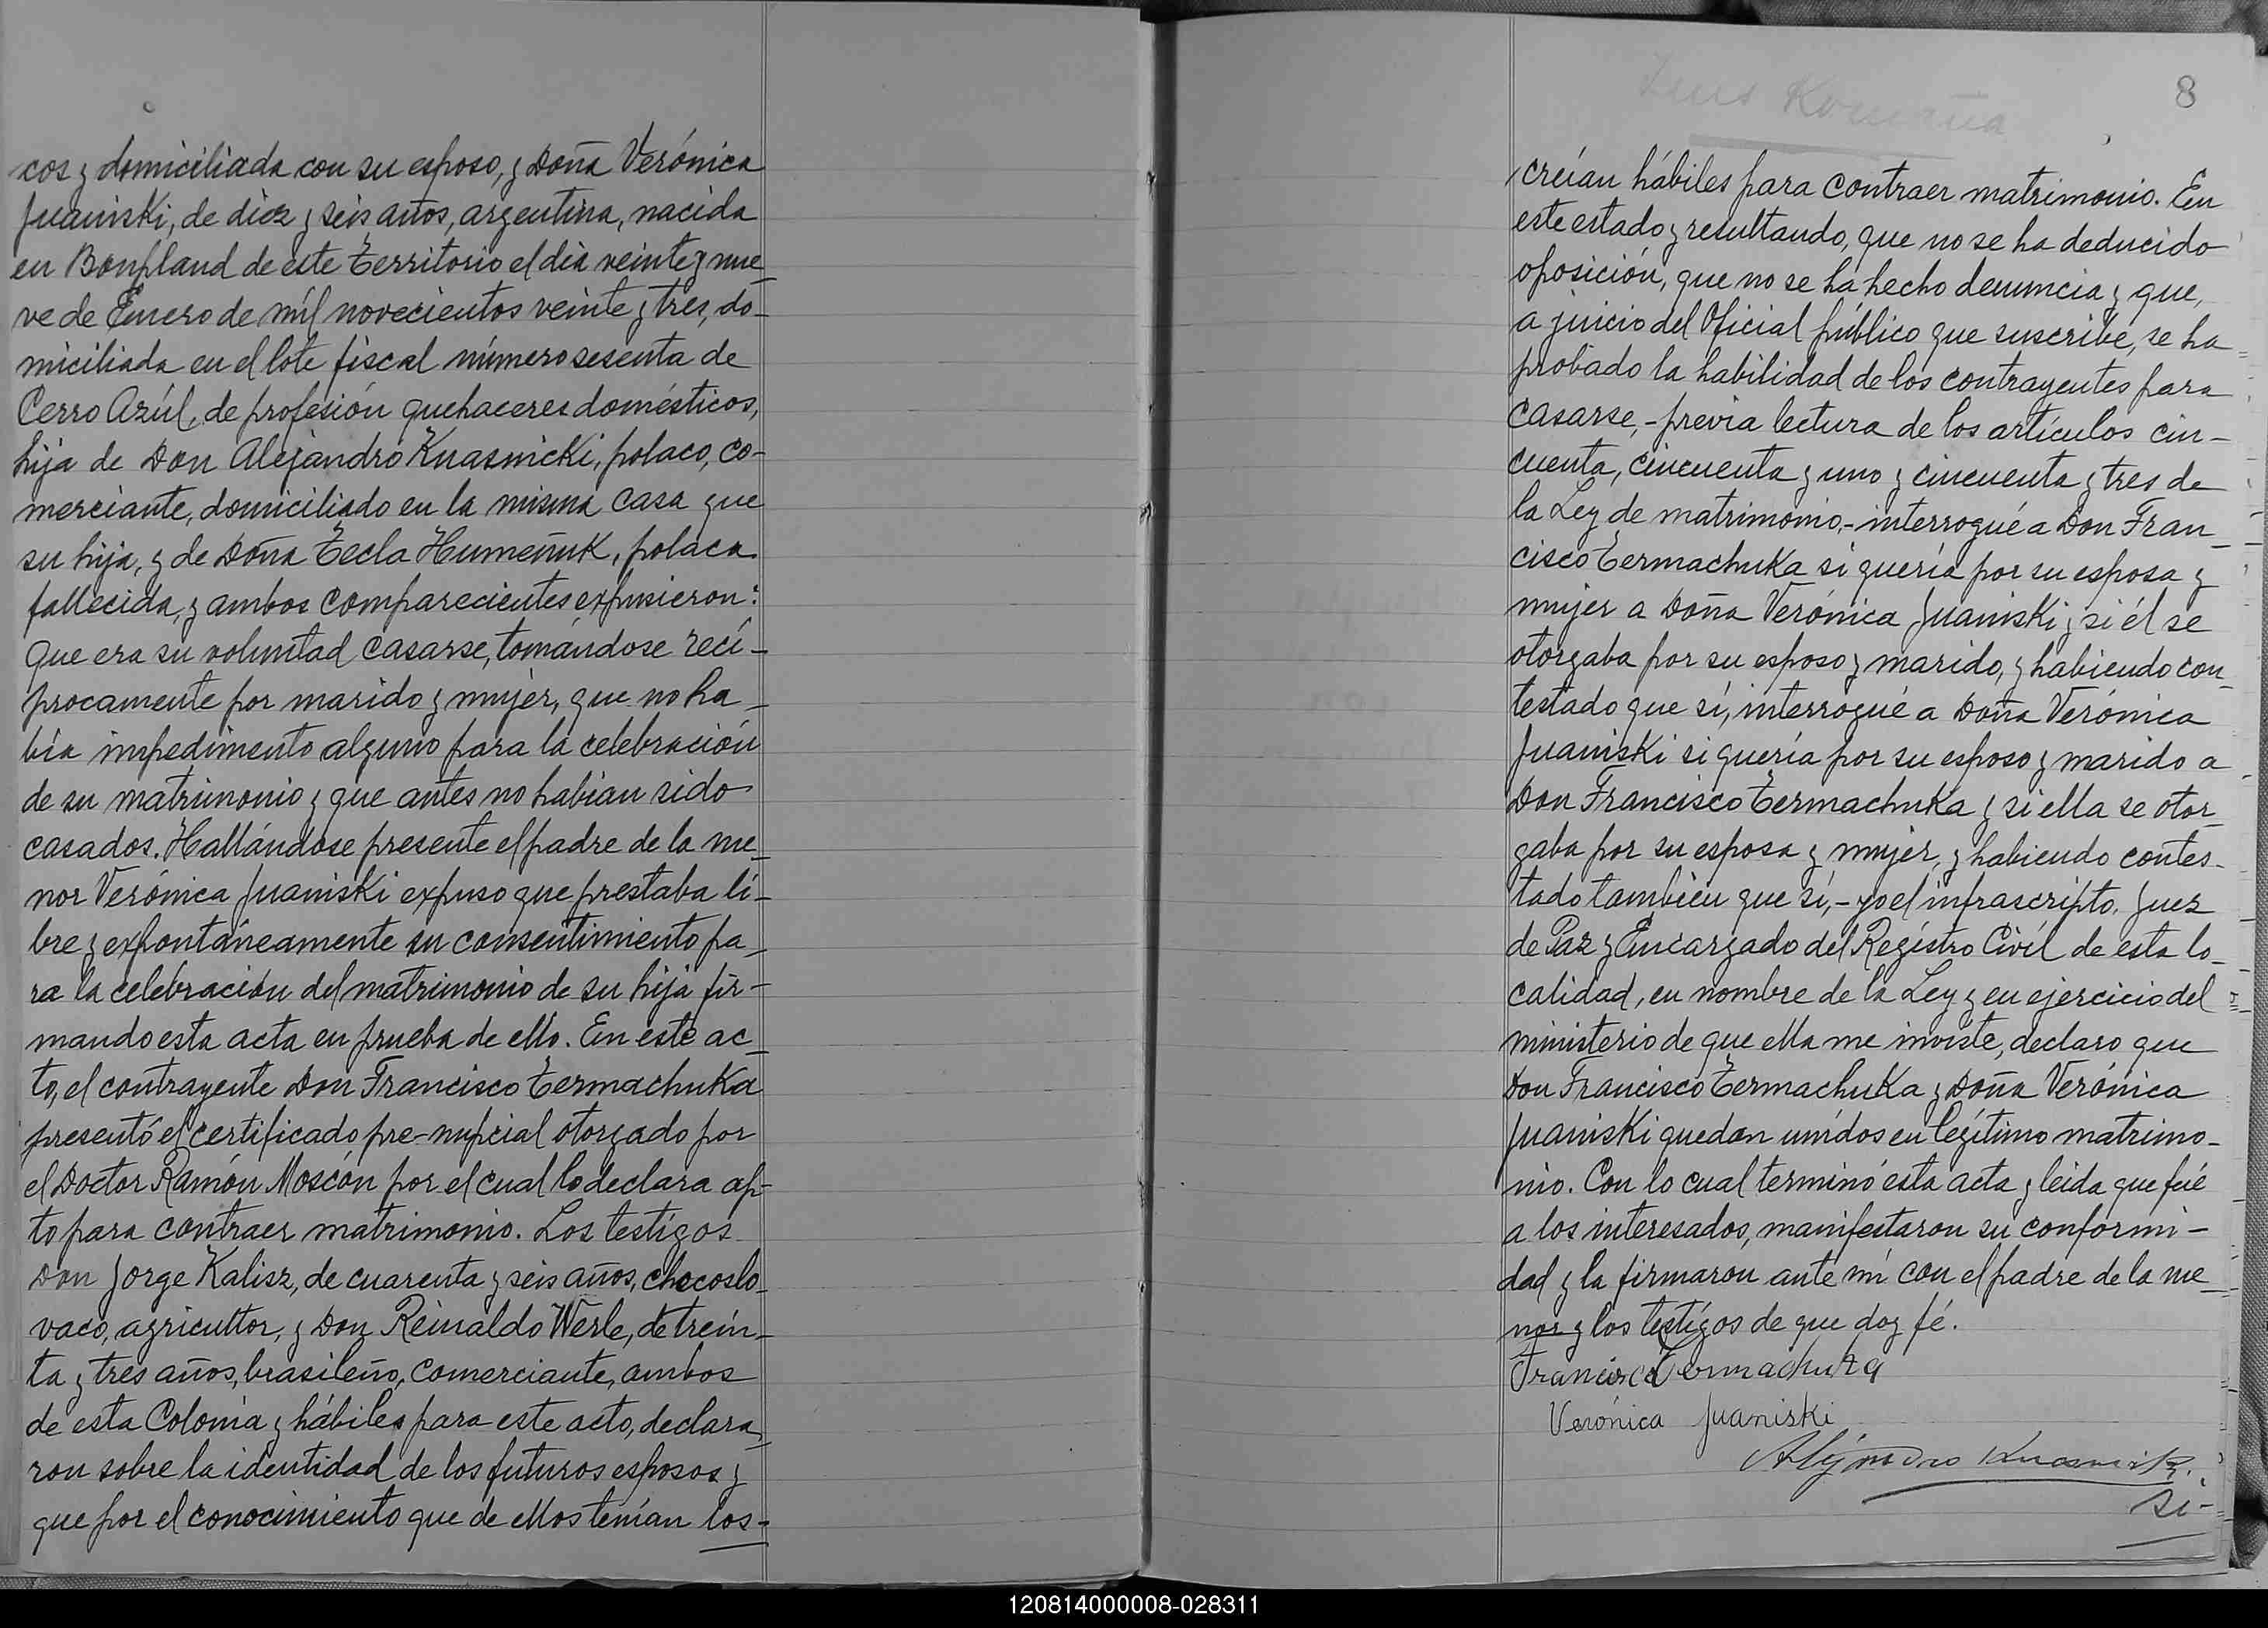 cos y domiciliada con su esposo, y Doña Verónica
Juaniski, de diez y seis años, argentina, nacida
en Bonpland de este Territorio el dia veinte y nue_
ve de Enero de mil novecientos veinte y tres, do_
miciliada en el lote fiscal número sesenta de
Cerro Azúl, de profesión quehaceres domésticos,
hija de Don Alejandro Knasnicki, polaco, co-
merciante, domiciliado en la misma casa que
su hija, y de Doña Tecla Humeñuk, polaca
fallecida, y ambos comparecientes expusieron:
Que era su voluntad casarse, tomándose recí_
procamente por marido y mujer, que no ha_
bía impedimento alguno para la celebración
de su matrimonio y que antes no habían sido
casados. Hallándose presente el padre de la me_
nor Verónica Juaniski expuso que prestaba li_
bre y expontáneamente su consentimiento pa_
ra la celebración del matrimonio de su hija fir-
mando esta acta en prueba de ello. En este ac_
to, el contrayente Don Francisco Termachuka
presentó el certificado pre-nupcial otorgado por
el Doctor Ramón Moscón por el cual lo declara ap-
to para contraer matrimonio. Los testigos
Don Jorge Kalisz, de cuarenta y seis años, checoslo_
vaco, agricultor, y Don Reinaldo Werle, de trein_
ta y tres años, brasileño, comerciante, ambos
de esta Colonia y hábiles para este acto, declara_
ron sobre la identidad de los futuros esposos y
que por el conocimiento que de ellos tenían los-
8
creían hábiles para contraer matrimonio. En
este estado y resultando, que no se ha deducido
oposición, que no se ha hecho denuncia y que,
a juicio del Oficial público que suscribe, se ha
probado la habilidad de los contrayentes para
casarse,- previa lectura de los artículos cin-
cuenta, cincuenta y uno y cincuenta y tres de
la Ley de matrimonio,- interrogué a Don Fran_
cisco Termachuka si quería por su esposa y
mujer a Doña Verónica Juaniski y si él se
otorgaba por su esposo y marido, y habiendo con_
testado que sí, interrogué a Doña Verónica
Juaniski si quería por su esposo y marido a
Don Francisco Termachuka y si ella se otor_
gaba por su esposa y mujer, y habiendo contes-
tado también que sí,- yo el infrascripto, Juez
de Paz y Encargado del Registro Civil de esta lo_
calidad, en nombre de la Ley y en ejercicio del
ministerio de que ella me inviste, declaro que
Don Francisco Termachuka y Doña Verónica
Juaniski quedan unidos en legítimo matrimo_
nio. Con lo cual terminó esta acta y leida que fué
a los interesados, manifestaron su conformi-
dad y la firmaron ante mí con el padre de la me_
nor y los testigos de que doy fé.
Francisco Termachuka
Verónica Juaniski
Alejandro Knasnicki
si-
120814000008-028311